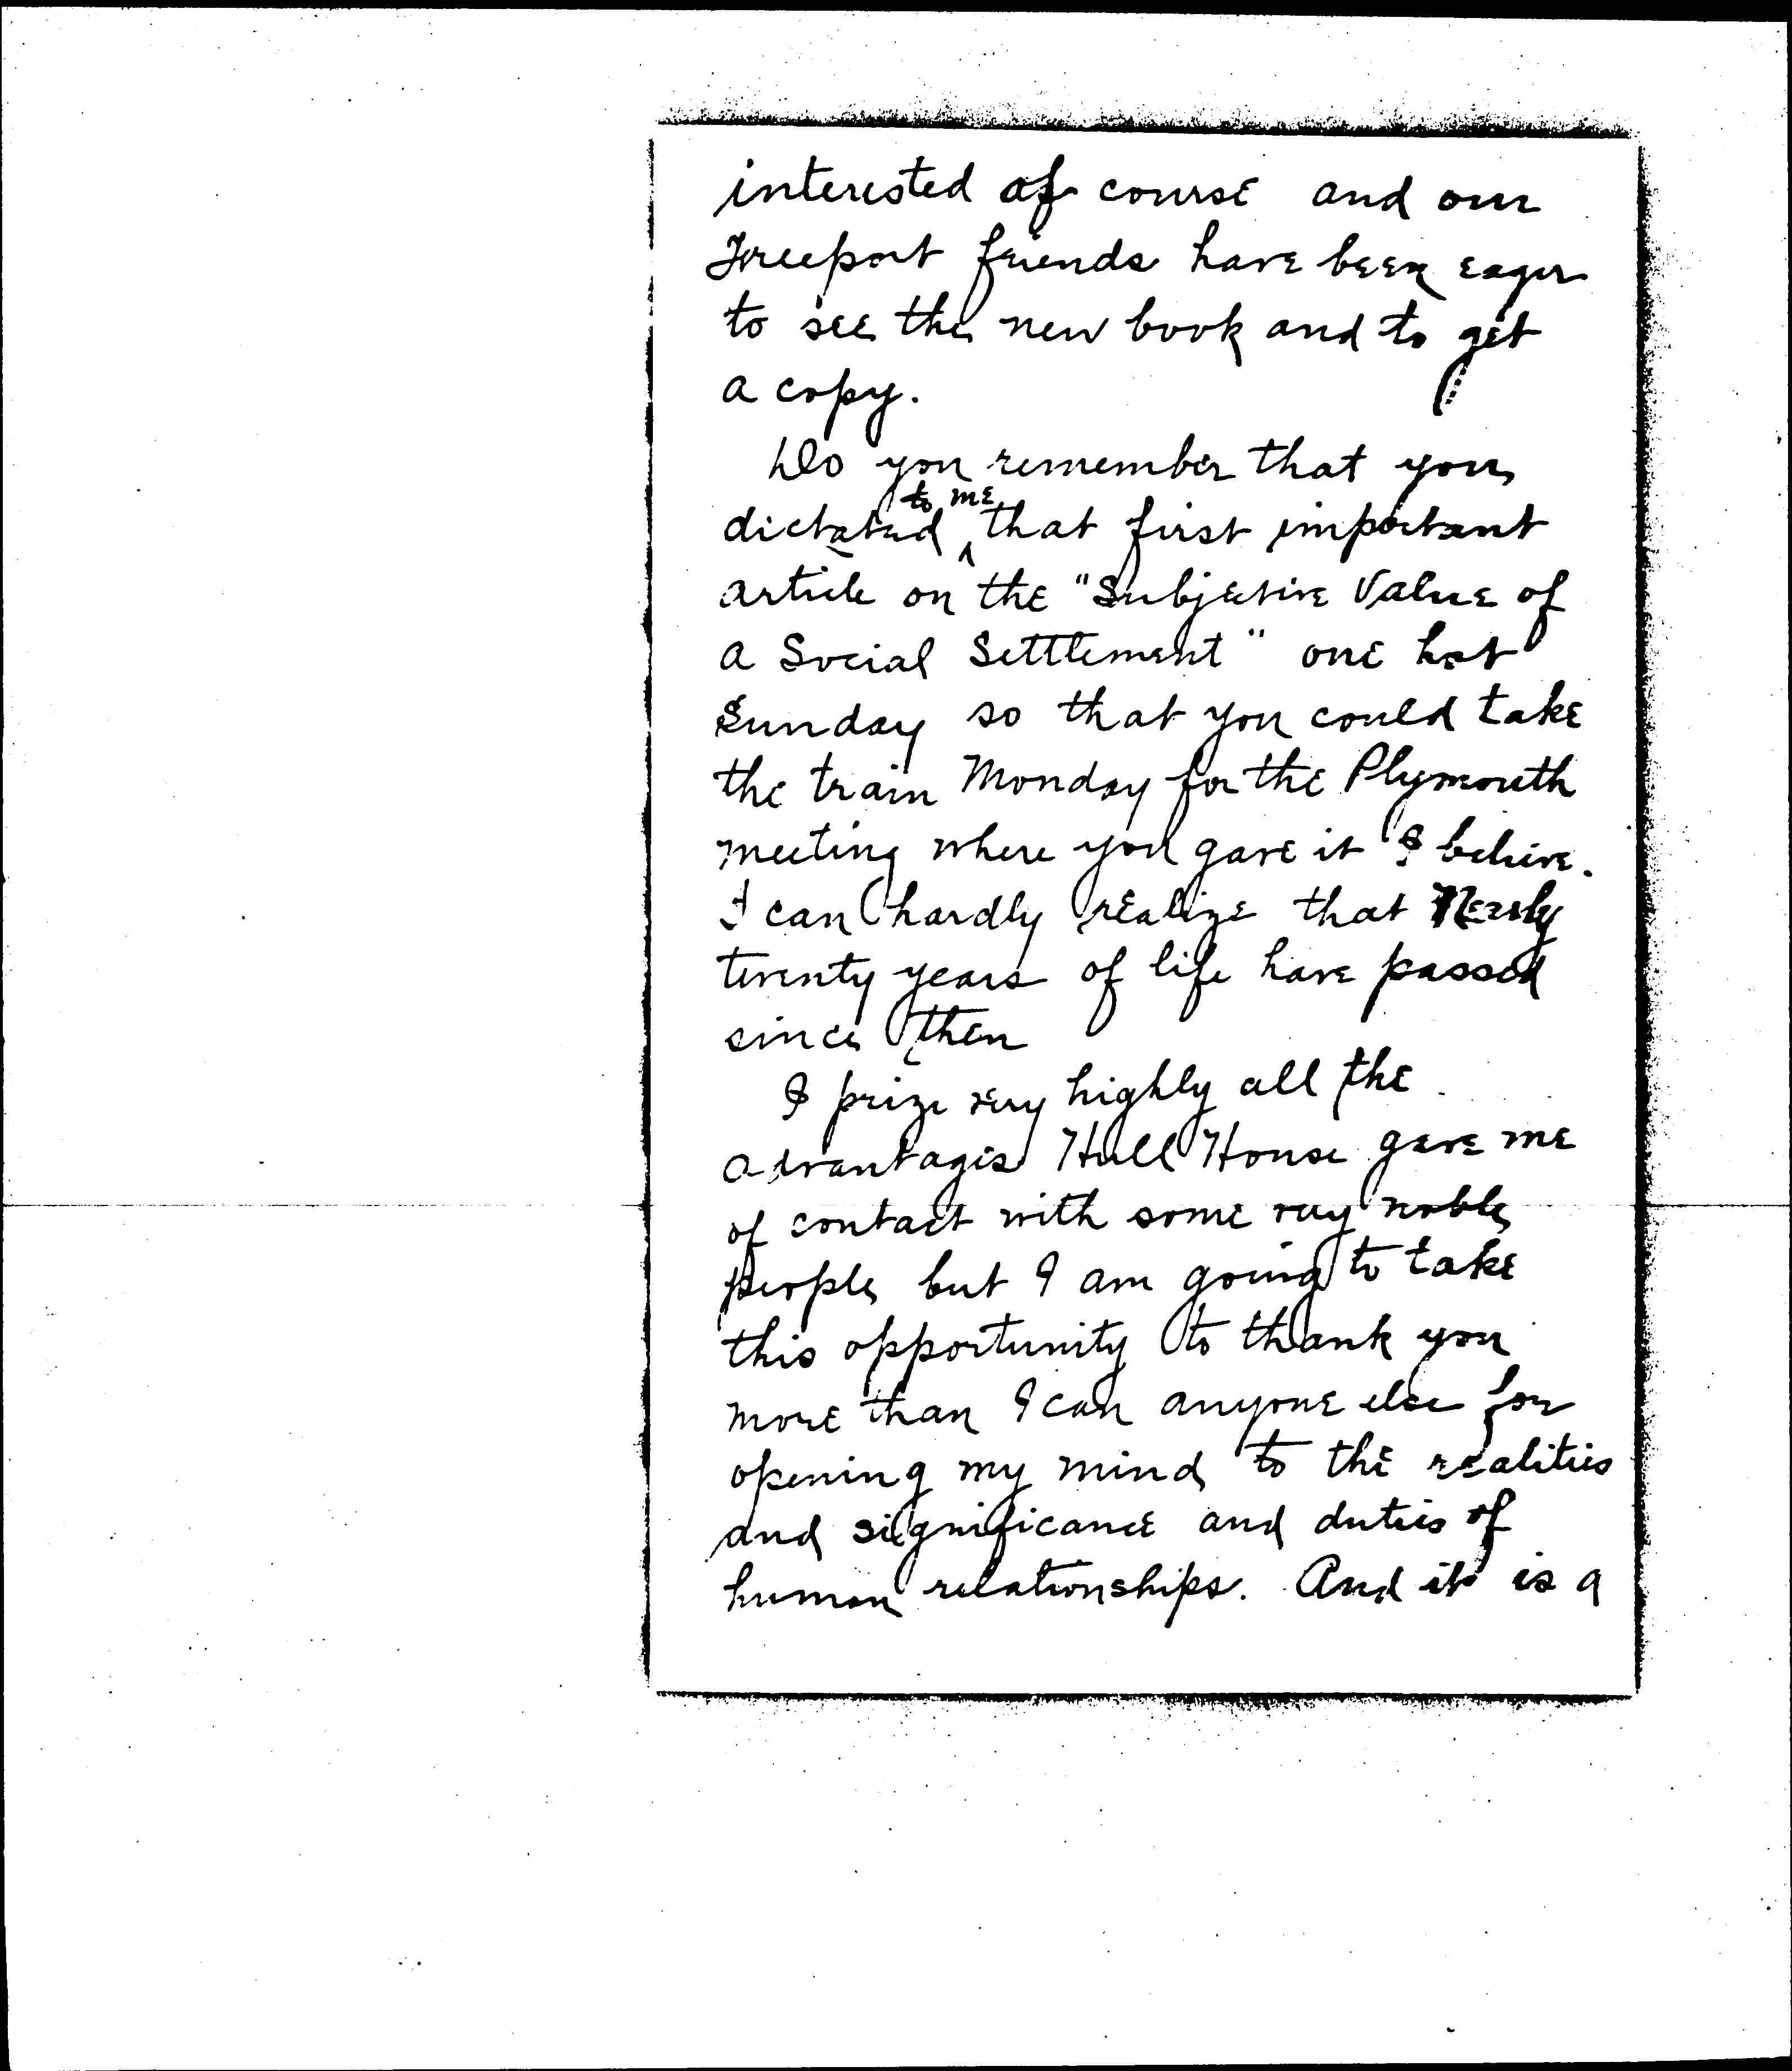 interested of course and our
Freeport friends have been eager
to see the new book and to get
a copy.
Do you remember that you
to me
dictated ^ that first important
article on the "Subjective Value of
a Social Settlement" one hot
Sunday so that you could take
the train Monday for the Plymouth
meeting where you gave it I believe.
I can hardly realize that Nearly
twenty years of life have passed
since then
I prize very highly all the
advantages Hull House gave me
of contact with some very noble
people but I am going to take
this opportunity to thank you
more than I can anyone else for
opening my mind to the realities
and significance and duties of
human relationships. And it is a